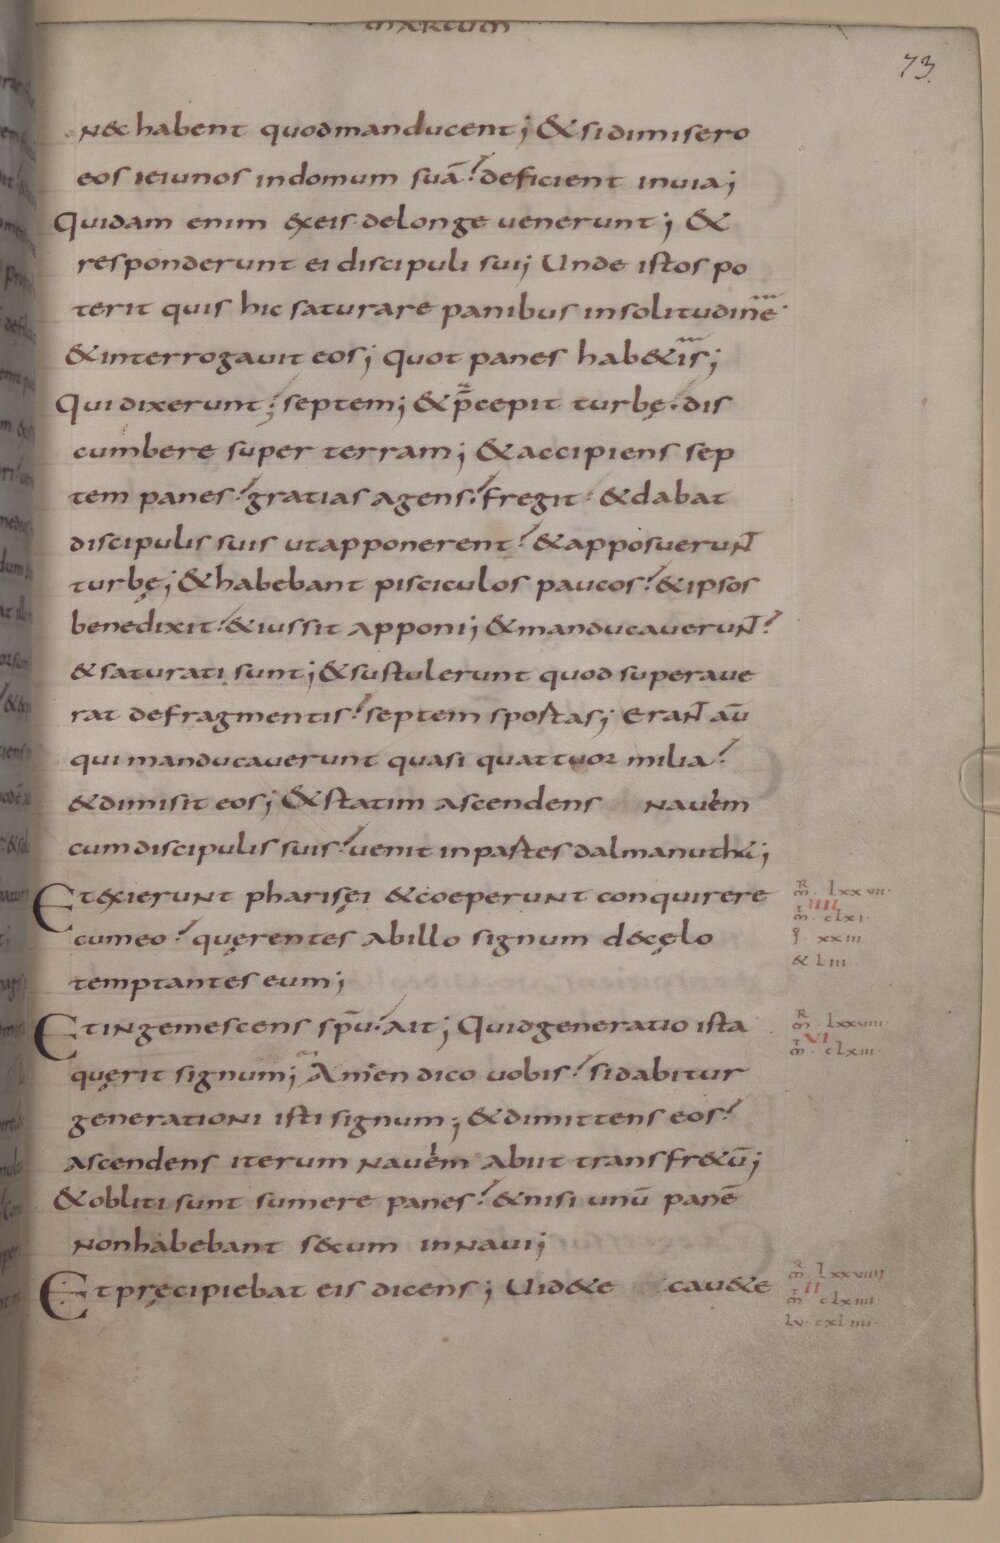 MARCUM
73.
nec habent quod manducent; & si dimisero
eos ieiunos in domum suā? deficient in uia;
Quidam enim ex eis de longe uenerunt; &
responderunt ei discipuli sui; Unde istos po
terit quis hic saturare panibus in solitudine
& interrogauit eos; quot panes hab&is;
Qui dixerunt; septem; & p̄cepit turbę. dis
cumbere super terram; & accipiens sep
tem panes? gratias agens? fregit & dabat
discipulis suis ut apponerent? & apposueruNT
turbę; & habebant pisciculos paucos? & ipsos
benedixit? & iussit apponi; & manducaueruNT?
& saturati sunt; & sustulerunt quod superaue
rat de fragmentis? septem sportas; EraNT aū
qui manducauerunt quasi quattuor milia?
& dimisit eos; & statim ascendens nauem
cum discipulis suis? uenit in partes dalmanuthę;
Et exierunt pharisęi & coeperunt conquirere
cum eo? quęrentes ab illo signum de cęlo
temptantes eum;
Et ingemescens spū. ait; Quid generatio ista
quęrit signum; Amen dico uobis? si dabitur
generationi isti signum; & dimittens eos?
ascendens iterum nauem abiit trans fr&ū;
& obliti sunt sumere panes? & nisi unū panē
non habebant secum in naui;
Et pręcipiebat eis dicens; Uid&e cau&e
m̄. lxxvii.
IIII
m̄. clxi.
xxiii
& liii
m̄ lxxviii
VI
m̄. clxiii
m̄ lxxviiii
II
m̄. clxiiii.
lu. cxliiii.